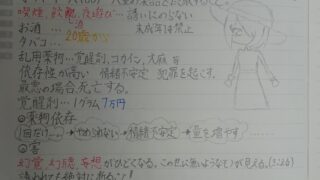 喫煙、飲酒、夜遊び…誘いにのらない
お酒…20歳から 未成年は禁止
タバコ…
乱用薬物…覚醒剤、コカイン、大麻 等
依存性が高い 情緒不安定 犯罪を起こす。
最悪の場合死亡する。
覚醒剤…1グラム7万円
◎薬物依存
1回だけ…→やめられない→情緒不安定→量を増やす
◎害
幻覚 幻聴 妄想がひどくなる。この世に無いようなモノが見える。
誘われても絶対にあること!!